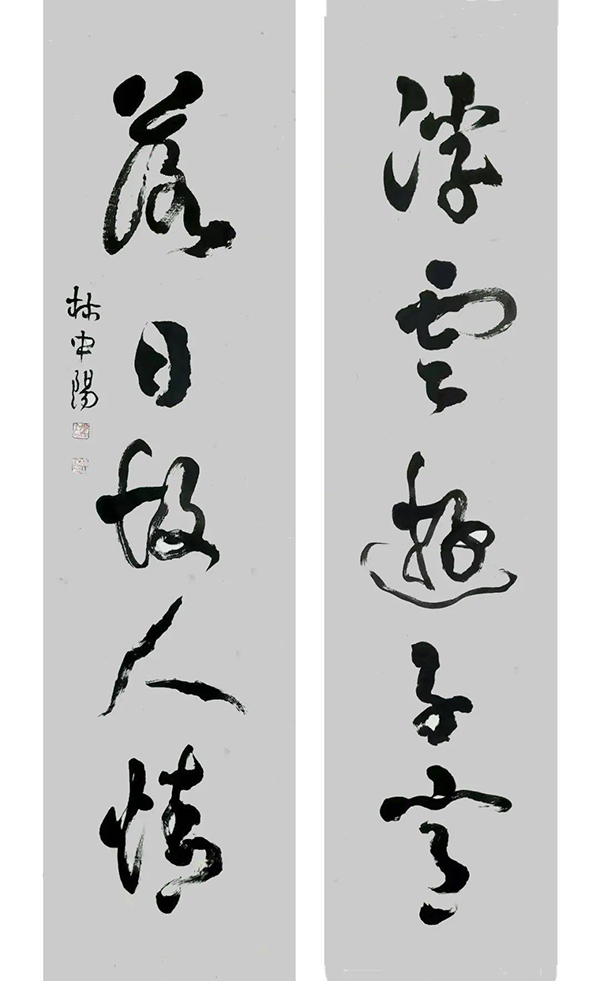 浮雲遊子意
落日故人情
林中陽